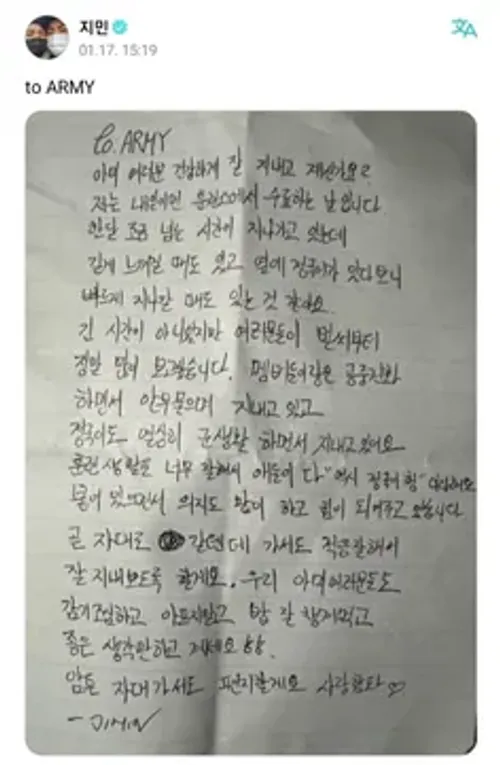 지민
01.17. 15:19
to ARMY
to. ARMY
아미 여러분 건강하게 잘 지내고 계신가요?
저는 내일이면 훈련소에서 수료하는 날입니다
한달 조금 넘는 시간이 지나가고 있는데
길게 느껴질 때도 있고 옆에 정국이가 있다보니
빠르게 지나간 때도 있는 것 같아요.
긴 시간이 아니었지만 여러분들이 벌써부터
정말 많이 보고싶습니다. 멤버들이랑은 공중전화
하면서 안부물으며 지내고 있고
정국이도 열심히 군생활 하면서 지내고 있어요
훈련생활도 너무 잘해서 애들이 다 "역시 정국이 형"
붙어 있으면서 의지도 많이 하고 힘이 되어주고 있습니다
곧 자대로 갈텐데 가서도 적응잘해서
잘 지내보도록 할게요. 우리 아미여러분들도
감기조심하고 아프지말고 밥 잘 챙겨먹고
좋은 생각만하고 계세요
암튼 자대가서도 편지할게요 사랑합니다 ♡
- JIMIN